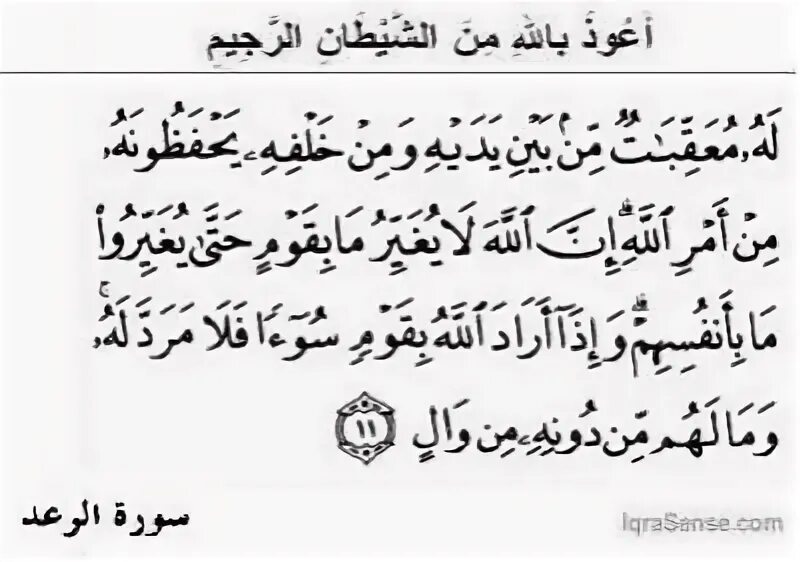 أعوذ بالله من الشيطان الرجيم
لَهُۥ مُعَقِّبَٰتٌ مِّنۢ بَيۡنِ يَدَيۡهِ وَمِنۡ خَلۡفِهِۦ يَحۡفَظُونَهُۥ
مِنۡ أَمۡرِ ٱللَّهِۗ إِنَّ ٱللَّهَ لَا يُغَيِّرُ مَا بِقَوۡمٍ حَتَّىٰ يُغَيِّرُواْ
مَا بِأَنفُسِهِمۡۗ وَإِذَآ أَرَادَ ٱللَّهُ بِقَوۡمٖ سُوٓءٗا فَلَا مَرَدَّ لَهُۥۚ
وَمَا لَهُم مِّن دُونِهِۦ مِن وَالٍ ١١
سورة الرعد
IqraSense.com